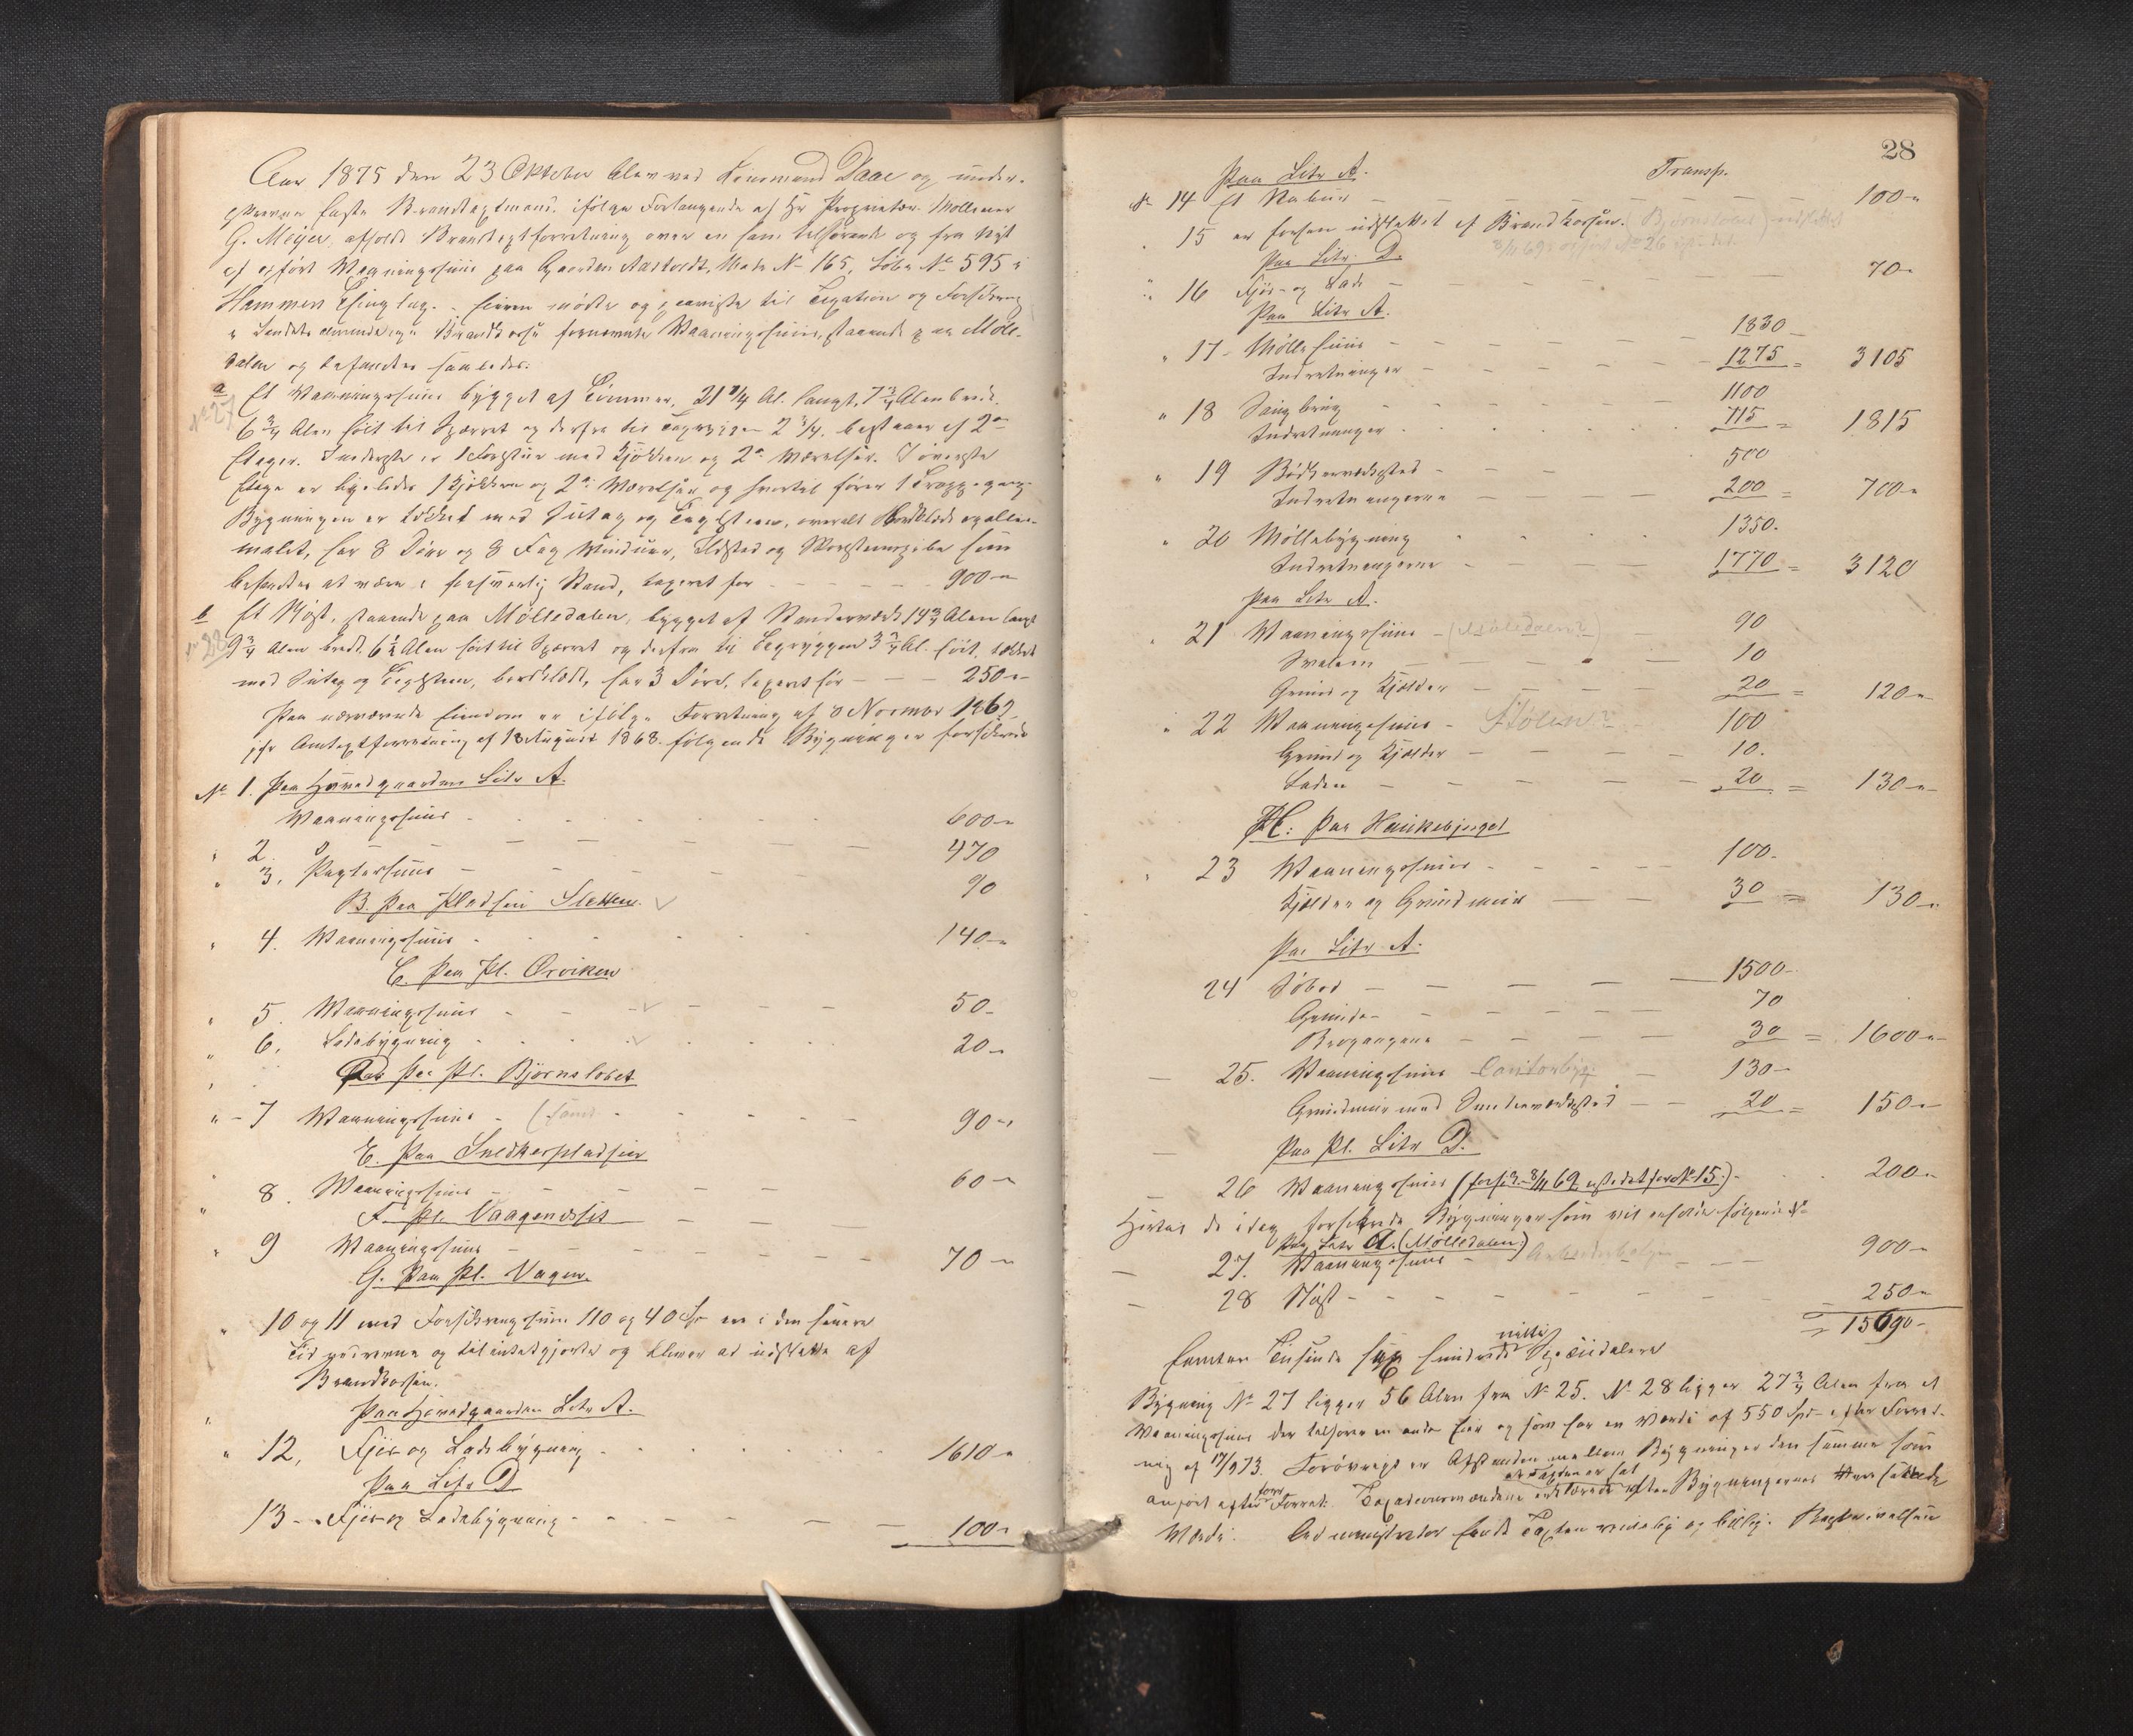 Aar 1875 den 23 Oktober blev ved Lensmand Daae og under-
skrevne faste Brandtaxtmænd ifølge Forlangende af Hr Proprietær Møllener
G. Meyer, afholdt Brandtaxtforretning over en ham tilhørende og fra Nyt
af opført Vaaningshuus paa Gaarden Aastvedt, Matr No 165, Løbe No 595 i
Hammers Thinglag. Eieren mødte og paaviste til Taxation og Forsikring
i Landets almindelige Brandkasse fornævnte Vaaningshuus, staaende paa Mølle-
dalen og befandtes saaledes:
a Et Vaaningshuus bygget af Tømmer, 21 1/4 Al. langt, 7 3/4 Alen bredt.
No 27
6 3/4 Alen høit til Sparret og derfra til Tagryggen 2 3/4. bestaaer af 2de
Etager. I nederste er 1 Forstue med Kjøkken og 2de Værelser. I øverste
Etage er ligeledes 1 Kjøkken og 2de Værelser og hvortil fører 1 Trappegang.
Bygningen er tækket med Sutag og Taglsteen, overalt Bordklædt og ollie-
malet, har 8 Døre og 8 Fag Vinduer, Ildsted og Skorsteenspibe som
befandtes at være i forsvarlig Stand, taxeret for - - - - - 900 "
b Et Nøst, staaende paa Mølledalen, bygget af Standerværk 14 3/4 Alen langt
No 28
9 3/4 Alen bredt, 6 1/2 Alen høit til Sparret og derfra til Tagryggen 3 3/4 Al. høit, tækket
med Sutag og Taglsteen, bordklædt, har 3 Døre, taxeret for - - - 250 "
Paa nærværende Eiendom er ifølge Forretning af 8 Novmbr 1869
jfr Omtaxtforretning af 18 August 1868 følgende Bygninger forsikrede
No 1. Paa Hovedgaarden Litr A.
Vaaningshuus - 600 "
" 2. D - 470
" 3. Pagterhuus - 90
B. Paa Pladsen Sletten.
" 4. Vaaningshuus - 140 "
C. Paa Pl. Ørviken
" 5. Vaaningshuus - 50 -
" 6. Ladebygning - 20 -
D. Paa Pl. Bjørnslobet
" - 7 Vaaningshuus - 90 "
E. Paa Snedkerpladsen
" 8. Vaaningshuus - 60 "
F. Pl. Vaagendslet
" 9 Vaaningshuus - 70 "
G. Paa Pl. Vagen.
" 10 og 11 med Forsikringssum 110 og 40 Sp ere i den senere
Tid nedrevne og tilintetgjorte og bliver at udslette af
Brandkassen.
Paa Hovedgaarden Litr A.
" 12, Fjøs og Ladebygning - 1610 "
Paa Litr D
13 - Fjøs og Ladebygning - 100 "
28
Paa Litr A. Transp.
No 14 Et Stabuur - 100 "
" 15 er forhen udslettet af Brandkassen.
Paa Litr. D.
" 16 Fjøs- og Lade - 70 "
Paa Litr A.
" 17 - Møllehuus - 1830
Indretninger - 1275 = 3105
" 18 Saugbrug - 1100
Indretninger - 715 = 1815
" 19 Bødkerværksted - 500
Indretningerne - 200 = 700 "
" 20 Møllebygning - 1350.
Indretningerne - 1770 = 3120
Paa Litr A.
" 21 Vaaningshuus - (Mølledalen?) 90
Svalen - 10
Gruus og Kjelder - 20 = 120 "
" 22 Vaaningshuus - Stølen? 100
Gruus og Kjelder - 10.
Laden - 20 = 130 "
H: Paa Haukebjerget
" 23 Vaaningshuus - 100.
Kjelder og Grundmuur - 30 = 130 "
Paa Litr A.
24 Søbod - 1500 -
Grunde - 70
Brogangene - 30 = 1600 "
- 25. Vaaningshuus Contorbyg. 130 -
Grundmuur med Smedeværksted - 20 = 150 "
Paa Pl. Litr D.
- 26 Vaaningshuus (forsik. 8/11 69 istedetfor No 15.) - 200 "
Hertil de idag forsikrede Bygninger som vil erholde følgende No
Paa Litr A. (Mølledalen)
- 27. Vaaningshuus - Arbeiderbolig - 900 "
- 28 Nøst - 250 "
= 15690 -
nitti
Femten Tusinde sex hundrede Speciedalere
Bygning No 27 ligger 56 Alen fra No 25. No 28 ligger 27 3/4 Alen fra et
Vaaningshuus der tilhører en anden Eier og som har en Værdi af 550 Spd efter Forret-
ning af 17/9 73. Forøvrigt er Afstanden mellem Bygninger den samme som
at Taxten er sat
anført efter før Forret. Taxationsmændene erklærede efter Bygningernes sande
Værdi. Administrator fandt Taxten rimelig og billig. Beskrivelsen